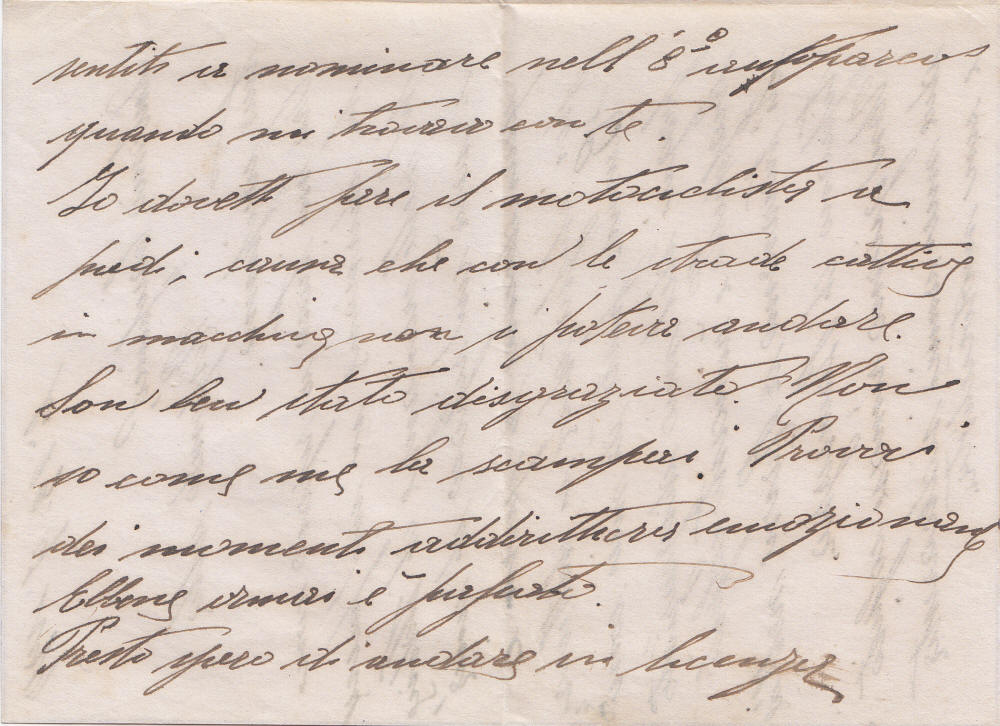 sentito a nominare nell'8º autoparco
quando mi trovavo con te.
Io dovetti fare il motociclista a
piedi, causa che con le strade cattive
in macchina non si poteva andare.
Son ben stato disgraziato. Non
so come me la scampai. Provai
dei momenti addirittura emozionanti
Ebbene ormai è passato.
Presto spero di andare in licenza